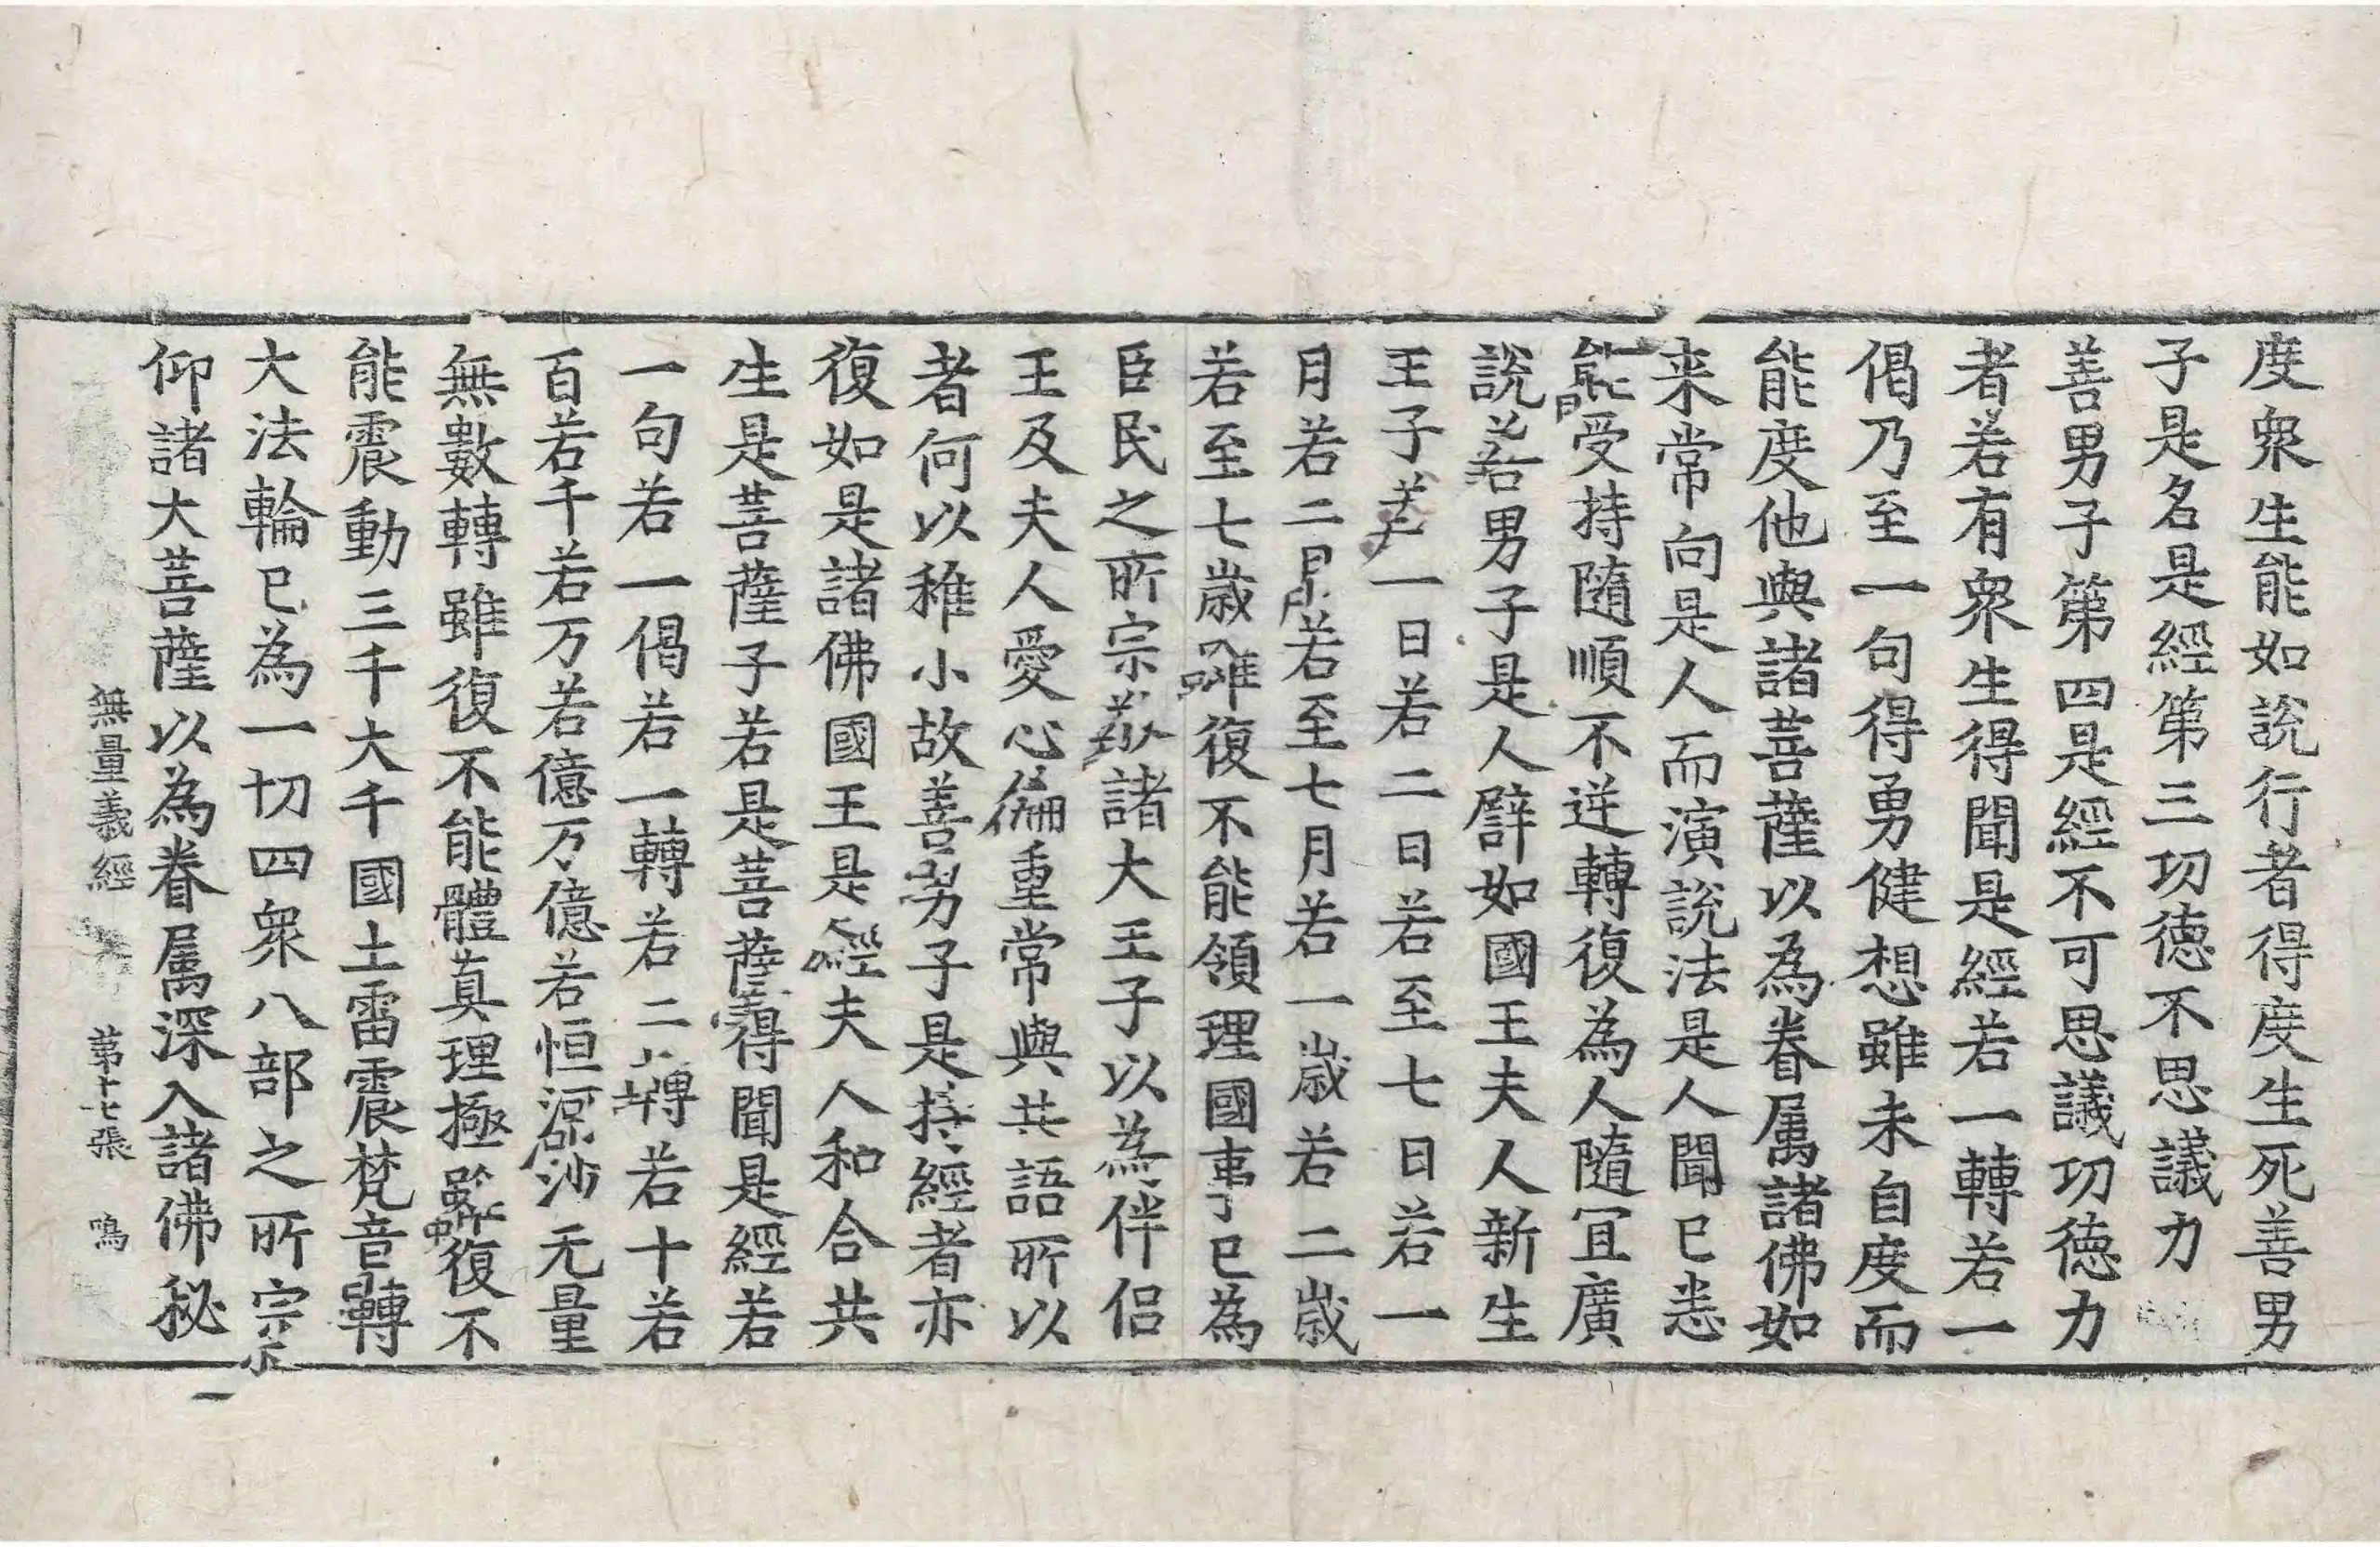 度衆生能如說行者得度生死善男
子是名是經第三功德不思議力
善男子第四是經不可思議功德力
者若有衆生得聞是經若一轉若一
偈乃至一句得勇健想雖未自度而
能度他與諸菩薩以為眷属諸佛如
来常向是人而演說法是人聞已悉
能受持隨順不逆轉復為人隨冝廣
說善男子是人譬如國王夫人新生
王子若一日若二日若至七日若一
月若二月若至七月若一歲若二歲
若至七歲雖復不能領理國事已為
臣民之所宗敬諸大王子以為伴侶
王及夫人愛心偏重常與共語所以
者何以稚小故善男子是持經者亦
復如是諸佛國王是經夫人和合共
生是菩薩子若是菩薩得聞是經若
一句若一偈若一轉若二轉若十若
百若千若万若億万億若恒河沙无量
無數轉雖復不能體真理極雖復不
能震動三千大千國土雷震梵音轉
大法輪已為一切四衆八部之所宗
仰諸大菩薩以為眷属深入諸佛秘
無量義經 第十七張 鳴